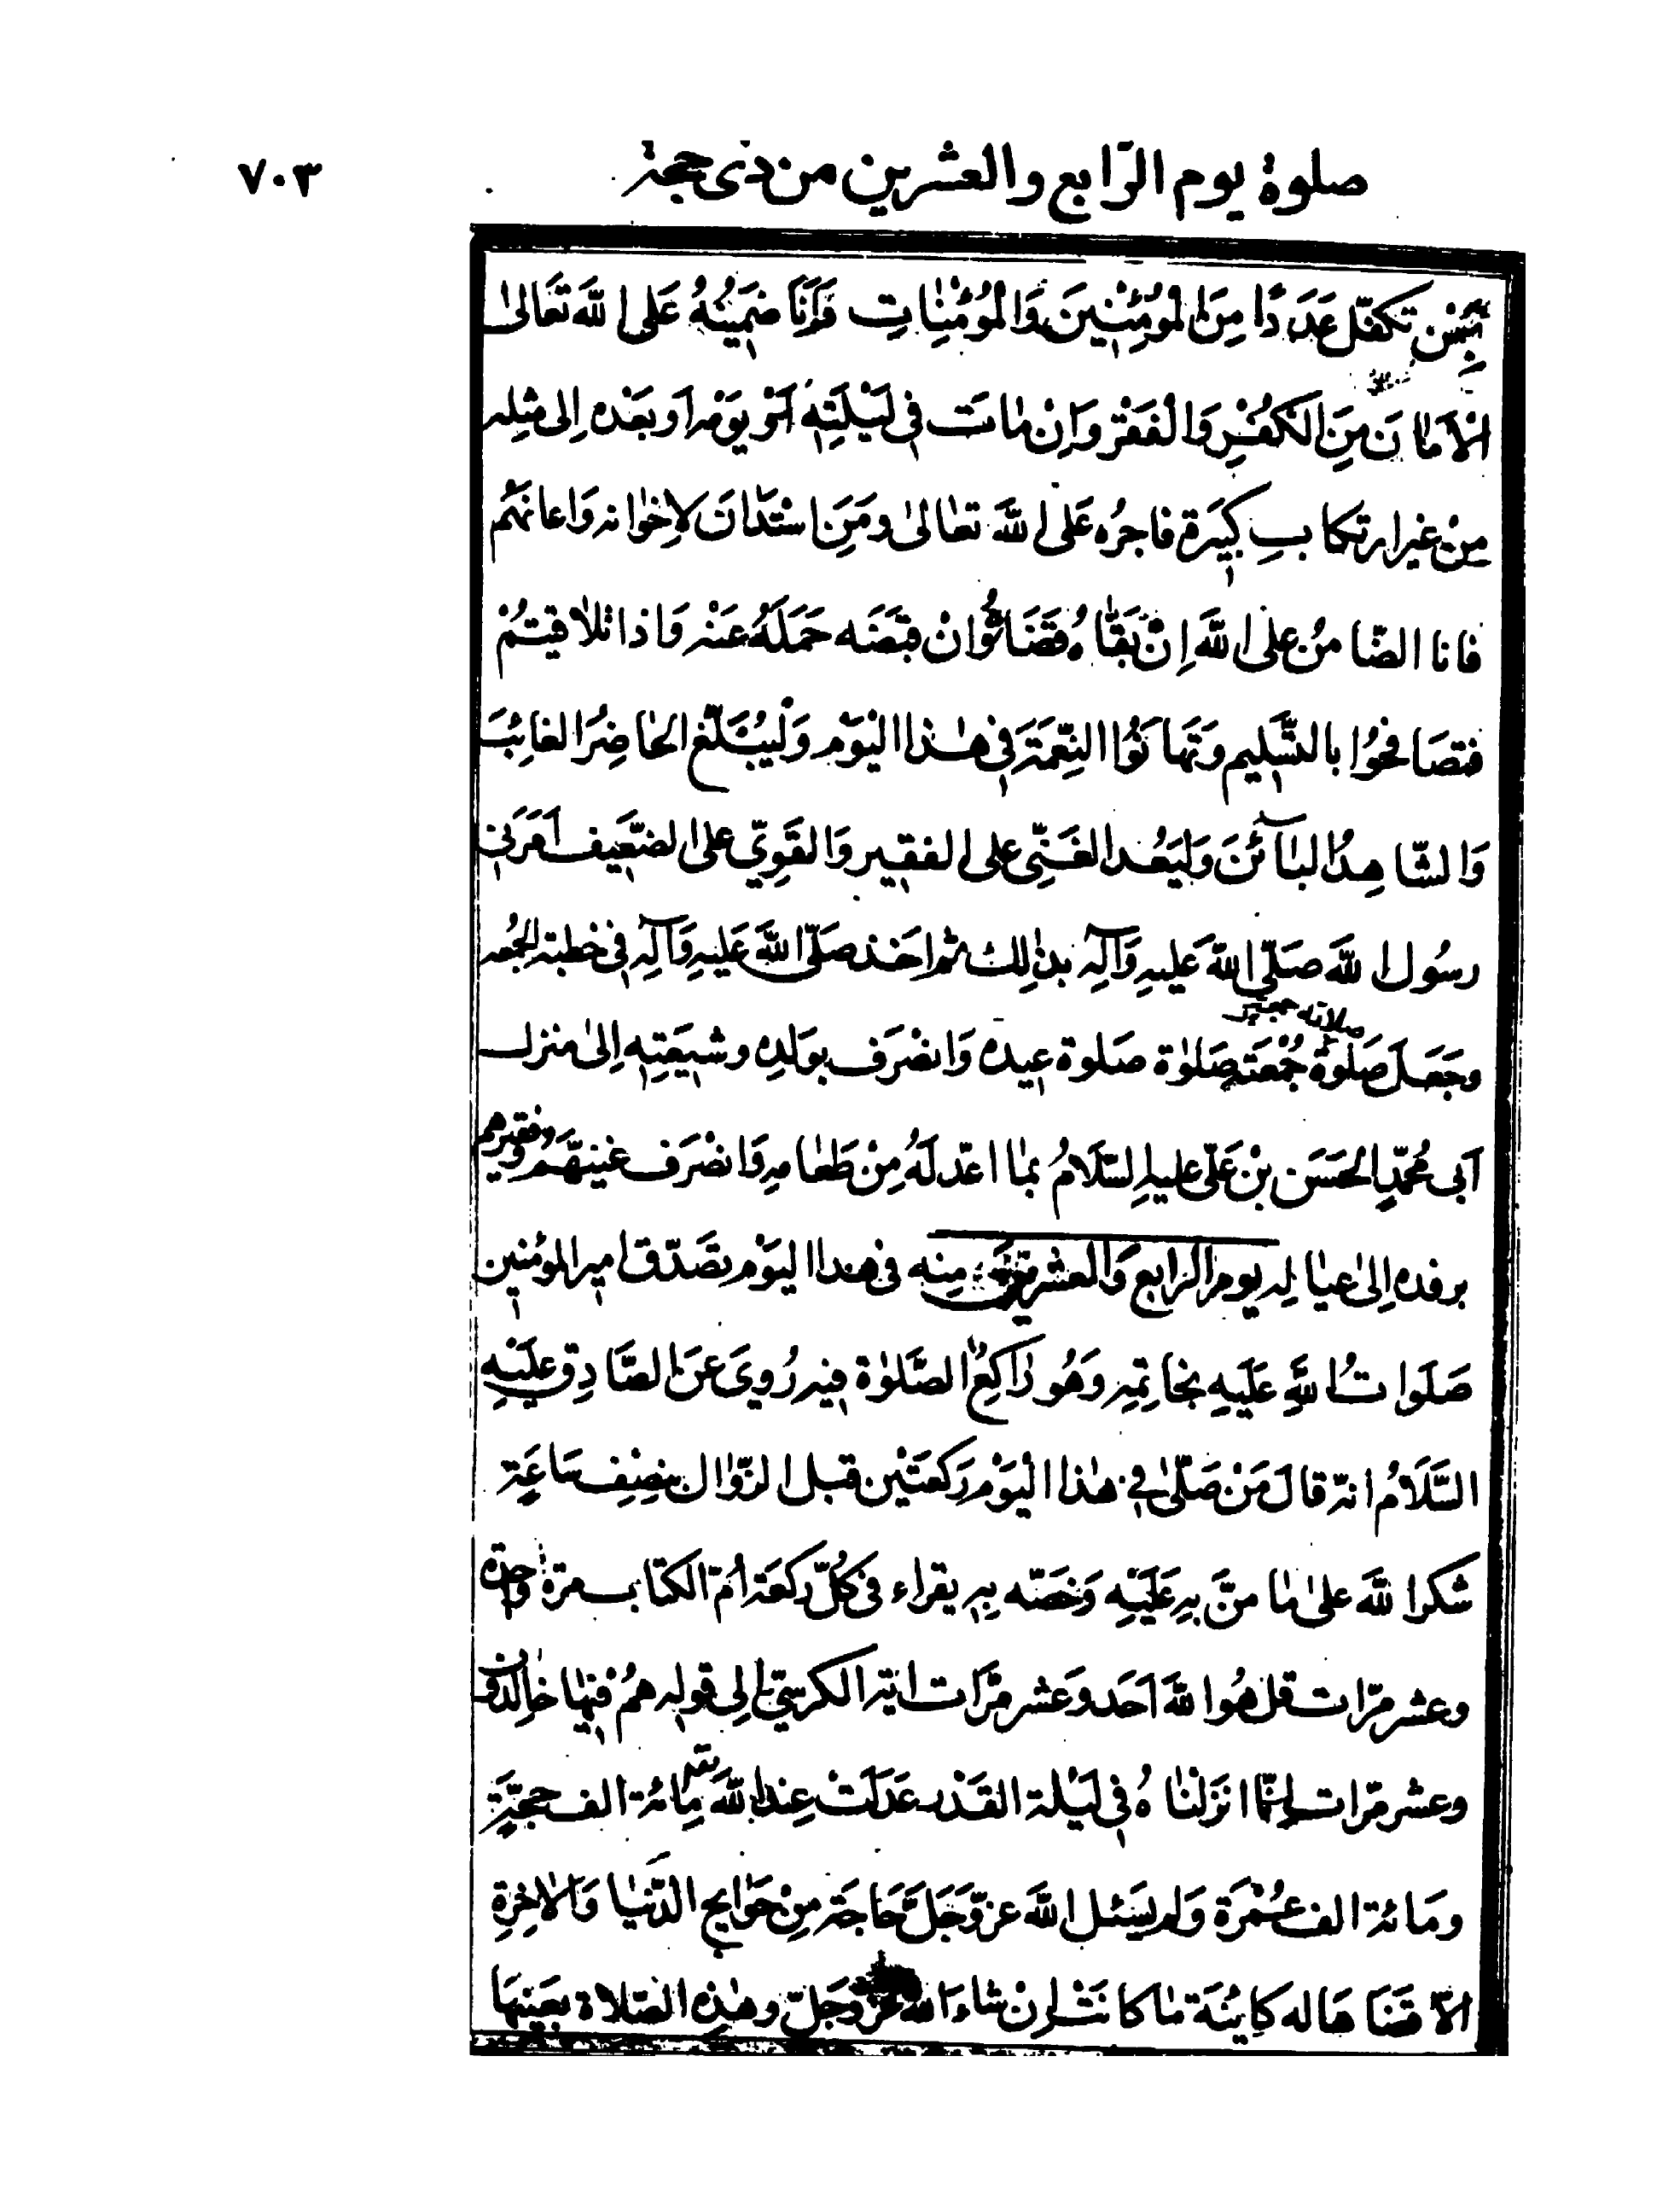 صلوة يوم الرّابع والعشرين من ذى حجة ٧٠٣
تكفّل عَدَدًا مِنَ المُؤمِنِينَ وَالْمُؤْمِنٰاتِ فَأَنَا ضَمِينُهُ عَلَى اللهَ تَعٰالىٰ
الْأَمٰانَ مِنَ الكُفْرِ وَالْفَقْرِ وَاِنْ مٰاتَ فِى لَيْلَتِهِ اَوْ يَوْمِه اَو بَعْدَه اِلى مثِلِه
مِنْ غير ارتكابِ كَبِيَرةٍ فاجرُه عَلَى اللهَ تعٰالىٰ ومَنِ اسْتَدٰانَ لاِخوٰانه وَاعانَهُم
فانا الضّامِنُ علَى اللهَ اِنْ بَقّٰاهُ قَضٰاهُ وَانْ قبَضَه حَمَلَهُ عَنْه وَاذا تلٰاقيتُمْ
فتصَافحوُا بالتّسَليم وَتَهٰانَوُا النِعْمَةَ فِى هٰذا اليَوْم وَلْيُبَلّغ الحٰاضِرُ الغائِبَ
وَالشّاهِدُ البٰآئنَ وَليَعُد الغَنِىّ على الفقير وَالقَوِىّ علىٰ الضّعَيف اَمَرَنِى
رسُول اللهَ صَلّى اللهَ عَليهِ وَآلِهِ بذٰلِك ثم اخَذ صَلّى اللهَ عَليهِ وَآلِهِ فِى خطبة الجُمعه
صلاته جمعته
وجَعَلَ صَلٰوةَ جُمْعَتِه صَلٰوة صَلوة عيده وَانصَرَف بوَلَدِه وشيعَتِهِ اِلىٰ منزل
اَبى مُحَمّدٍ الحَسَن بْن عَلّى عليهِ السّلَامُ بمٰا اعدّ لَهُ مِنْ طَعٰامِهِ وَانصْرَف غنيّهُم وفقيرهم
برفده اِلىٰ عيٰالِه يوم الرابع وَالعشرين منِه فى هذا اليَوْم تصَدّق امير المؤمنين
صَلَوٰاتُ اللهَ عَليَهِ بخاتِمِهِ وَهُو رٰاكِعٌ الصَّلوٰة فيه رُوِىَ عَنِ الصّٰادِق عليَهِ
السَّلَامُ انّه قالَ مَنْ صَلّىٰ فِى هٰذا اليَوْم رَكعتَيْن قبل الزّوٰال بنِصْفِ سٰاعَةٍ
شكرا للهَ علىٰ مٰا منَّ بِهِ عَلَيْهِ وَخصّه بِهِ يقراء فى كُلّ ركعَة اُمّ الكتاب مرّة واحدة
وعشر مرّات قل هُوا للهَ اَحَد وَعشر مرَّات اية الكرسِىّ اِلى قولِه همُ فيْهٰا خٰالِدُون
وعشر مرّات اِنّا انزَلنٰاهُ فِى لَيْلة القَدْر عَدَلَتْ عِندَ اللهَ مِائة الف حجَّةٍ
ومَائة الف عُمْرَة وَلم يَسَئل اللهَ عزّوَجَلَّ حَاجَة مِنْ حَوٰائِجِ الدّنيٰا وَالاٰخِرَةِ
الّا قَضٰاهَا له كٰايُنَة مٰا كانَتْ اِنْ شٰاءَ اللهُ عزّ وجَلّ وهٰذِهِ الصّلاة بعَينِهٰا